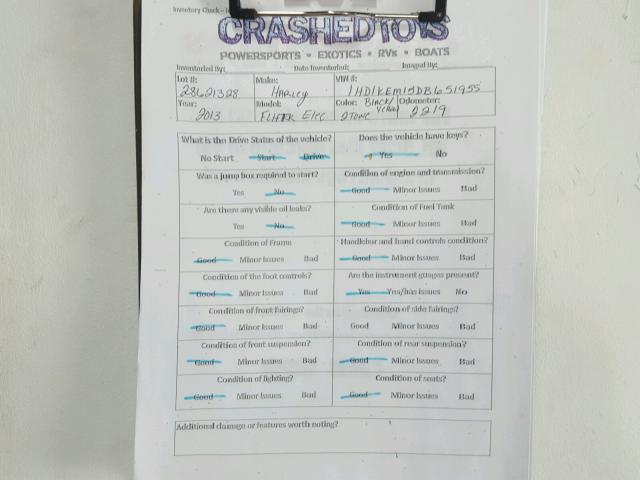 Inventory Check –
CRASHEDTOYS
POWERSPORTS • EXOTICS • RVs • BOATS
Inventoried By: Date Inventoried: Imaged By:
Lot #: 28621328 Make: Harley VIN #: 1HD1KEM15DB651955
Year: 2013 Model: FLHTK Elec Color: Black/Yellow 2Tone Odometer: 2219
What is the Drive Status of the vehicle? Does the vehicle have keys?
No Start Start Drive Yes No
Was a jump box required to start? Condition of engine and transmission?
Yes No Good Minor Issues Bad
Are there any visible oil leaks? Condition of Fuel Tank
Yes No Good Minor Issues Bad
Condition of Frame Handlebar and hand controls condition?
Good Minor Issues Bad Good Minor Issues Bad
Condition of the foot controls? Are the instrument guages present?
Good Minor Issues Bad Yes Yes/has issues No
Condition of front fairings? Condition of side fairings?
Good Minor Issues Bad Good Minor Issues Bad
Condition of front suspension? Condition of rear suspension?
Good Minor Issues Bad Good Minor Issues Bad
Condition of lighting? Condition of seats?
Good Minor Issues Bad Good Minor Issues Bad
Additional damage or features worth noting?